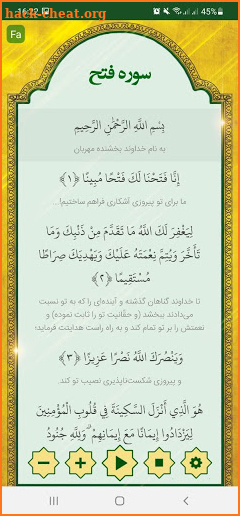 16:22 45%
hack-cheat.org
Fa
سوره فتح
بِسْمِ اللَّهِ الرَّحْمَٰنِ الرَّحِيمِ
به نام خداوند بخشنده مهربان
إِنَّا فَتَحْنَا لَكَ فَتْحًا مُبِينًا ﴿١﴾
ما برای تو پیروزی آشکاری فراهم ساختیم!...
لِيَغْفِرَ لَكَ اللَّهُ مَا تَقَدَّمَ مِنْ ذَنْبِكَ وَمَا
تَأَخَّرَ وَيُتِمَّ نِعْمَتَهُ عَلَيْكَ وَيَهْدِيَكَ صِرَاطًا
مُسْتَقِيمًا ﴿٢﴾
تا خداوند گناهان گذشته و آینده‌ای را که به تو نسبت
می‌دادند ببخشد (و حقّانیت تو را ثابت نموده) و
نعمتش را بر تو تمام کند و به راه راست هدایتت فرماید؛
وَيَنْصُرَكَ اللَّهُ نَصْرًا عَزِيزًا ﴿٣﴾
و پیروزی شکست‌ناپذیری نصیب تو کند.
هُوَ الَّذِي أَنْزَلَ السَّكِينَةَ فِي قُلُوبِ الْمُؤْمِنِينَ
لِيَزْدَادُوا إِيمَانًا مَعَ إِيمَانِهِمْ ۗ وَلِلَّهِ جُنُودُ